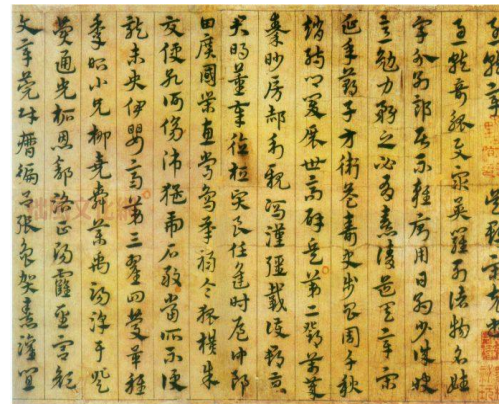 急就奇觚與眾異羅列諸物名姓
字分別部居不雜廁用日約少誠快
意勉力務之必有憙請道其章宋
延年鄭子方衛益壽史步昌周千秋
趙孺卿爰展世高辟兵第二鄧萬歲
秦眇房郝利親馮漢彊戴護郡景
君明董奉德桓賢良任逢時侯仲郎
田廣國榮惠常烏承祿令狐橫朱
交便孔何傷師猛虎石敢當所不侵
龍未央伊嬰齊第三翟回慶畢稚
季昭小兄柳堯舜藥禹湯淳于登
費通光柘恩舒路正陽霍聖宮顏
文章莞財歷偏呂張魯賀憙灌宜